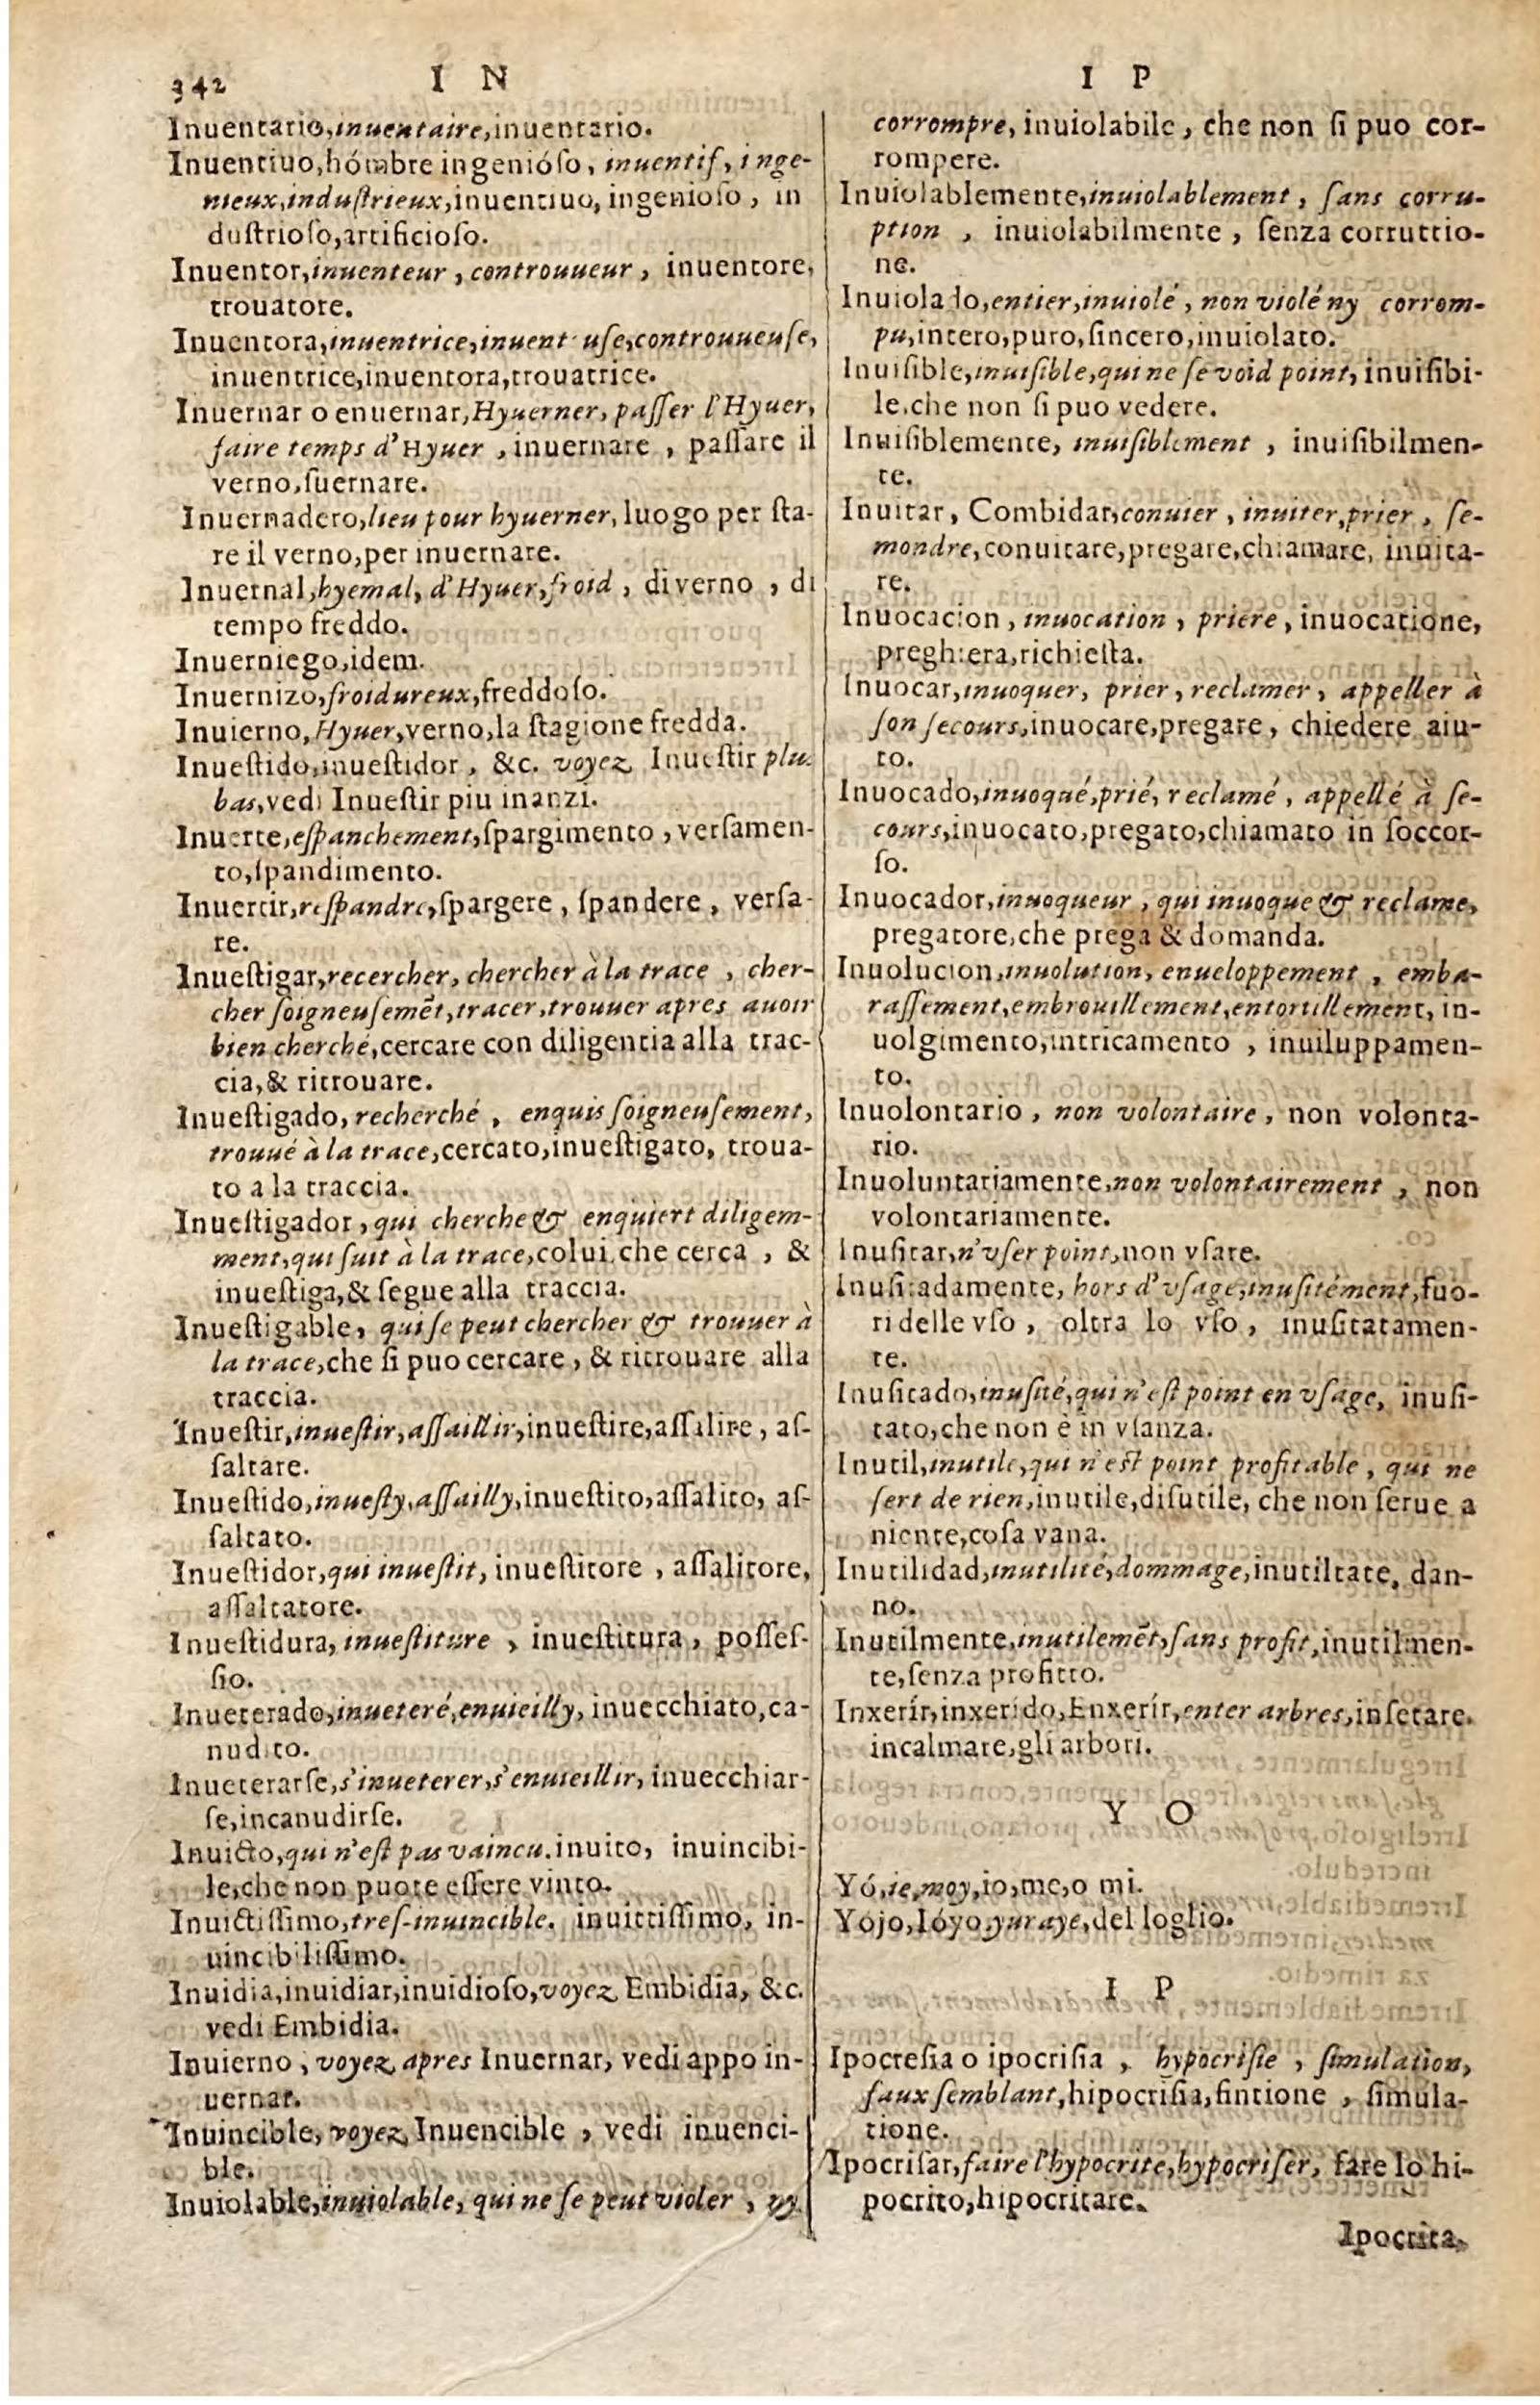 342 I N
Inuentario, inuentaire, inuentario.
Inuentiuo, hómbre ingenióſo, inuentif, inge-
nieux, induſtrieux, inuentiuo, ingenioſo, in
duſtrioſo, artificioſo.
Inuentor, inuenteur, controuueur, inuentore,
trouatore.
Inuentora, inuentrice, inuent uſe, controuueuſe,
inuentrice, inuentora, trouatrice.
Inuernar o enuernar, Hyuerner, paſſer l'Hyuer,
faire temps d'Hyuer, inuernare, paſſare il
verno, ſuernare.
Inuernadero, lieu pour hyuerner, luogo per ſta-
re il verno, per inuernare.
Inuernal, hyemal, d'Hyuer, froid, di verno, di
tempo freddo.
Inuerniego, idem.
Inuernizo, froidureux, freddoſo.
Inuierno, Hyuer, verno, la ſtagione fredda.
Inueſtido, inueſtidor, &c. voyez Inueſtir plus
bas, vedi Inueſtir piu inanzi.
Inuerte, eſpanchement, ſpargimento, verſamen-
to, ſpandimento.
Inuertir, reſpandre, ſpargere, ſpandere, verſa-
re.
Inueſtigar, recercher, chercher à la trace, cher-
cher ſoigneuſemẽt, tracer, trouuer apres auoir
bien cherché, cercare con diligentia alla trac-
cia, & ritrouare.
Inueſtigado, recherché, enquis ſoigneuſement,
trouué à la trace, cercato, inueſtigato, troua-
to a la traccia.
Inueſtigador, qui cherche & enquiert diligem-
ment, qui ſuit à la trace, colui che cerca, &
inueſtiga, & ſegue alla traccia.
Inueſtigable, qui ſe peut chercher & trouuer à
la trace, che ſi puo cercare, & ritrouare alla
traccia.
Inueſtir, inueſtir, aſſaillir, inueſtire, aſſalire, aſ-
ſaltare.
Inueſtido, inueſty, aſſailly, inueſtito, aſſalito, aſ-
ſaltato.
Inueſtidor, qui inueſtit, inueſtitore, aſſalitore,
aſſaltatore.
Inueſtidura, inueſtiture, inueſtitura, poſſeſ-
ſio.
Inueterado, inueteré, enuieilly, inuecchiato, ca-
nudito.
Inueterarſe, s'inueterer, s'enuieillir, inuecchiar-
ſe, incanudirſe.
Inuicto, qui n'eſt pas vaincu. inuito, inuincibi-
le, che non puote eſſere vinto.
Inuictiſſimo, treſ-inuincible. inuittiſſimo, in-
uincibiliſſimo.
Inuidia, inuidiar, inuidioſo, voyez Embidia, &c.
vedi Embidia.
Inuierno, voyez apres Inuernar, vedi appo in-
uernar.
Inuincible, voyez Inuencible, vedi inuenci-
ble.
Inuiolable, inuiolable, qui ne ſe peut violer, ny
I P
corrompre, inuiolabile, che non ſi puo cor-
rompere.
Inuiolablemente, inuiolablement, ſans corru-
ption, inuiolabilmente, ſenza corruttio-
ne.
Inuiolado, entier, inuiolé, non violé ny corrom-
pu, intero, puro, ſincero, inuiolato.
Inuiſible, inuiſible, qui ne ſe void point, inuiſibi-
le, che non ſi puo vedere.
Inuiſiblemente, inuiſiblement, inuiſibilmen-
te.
Inuitar, Combidar, conuier, inuiter, prier, ſe-
mondre, conuitare, pregare, chiamare, inuita-
re.
Inuocacion, inuocation, priere, inuocatione,
preghiera, richieſta.
Inuocar, inuoquer, prier, reclamer, appeller à
ſon ſecours, inuocare, pregare, chiedere aiu-
to.
Inuocado, inuoqué, prié, reclamé, appellé à ſe-
cours, inuocato, pregato, chiamato in ſoccor-
ſo.
Inuocador, inuoqueur, qui inuoque & reclame,
pregatore, che prega & domanda.
Inuolucion, inuolution, enueloppement, emba-
raſſement, embrouillement, entortillement, in-
uolgimento, intricamento, inuiluppamen-
to.
Inuolontario, non volontaire, non volonta-
rio.
Inuoluntariamente, non volontairement, non
volontariamente.
Inuſitar, n'vſer point, non vſare.
Inuſitadamente, hors d'vſage, inuſitément, fuo-
ri delle vſo, oltra lo vſo, inuſitatamen-
te.
Inuſitado, inuſité, qui n'eſt point en vſage, inuſi-
tato, che non è in vſanza.
Inutil, inutile, qui n'eſt point profitable, qui ne
ſert de rien, inutile, diſutile, che non ſerue a
niente, coſa vana.
Inutilidad, inutilité, dommage, inutiltate, dan-
no.
Inutilmente, inutilemẽt, ſans profit, inutilmen-
te, ſenza profitto.
Inxerír, inxerido, Enxerír, enter arbres, inſetare.
incalmare, gli arbori.
Y O
Yó, ie, moy, io, me, o mi.
Yojo, Ióyo, yuraye, del loglio.
I P
Ipocreſia o ipocriſia, hypocriſie, ſimulation,
faux ſemblant, hipocriſia, fintione, ſimula-
tione.
Ipocriſar, faire l'hypocrite, hypocriſer, fare lo hi-
pocrito, hipocritare.
Ipocrita,